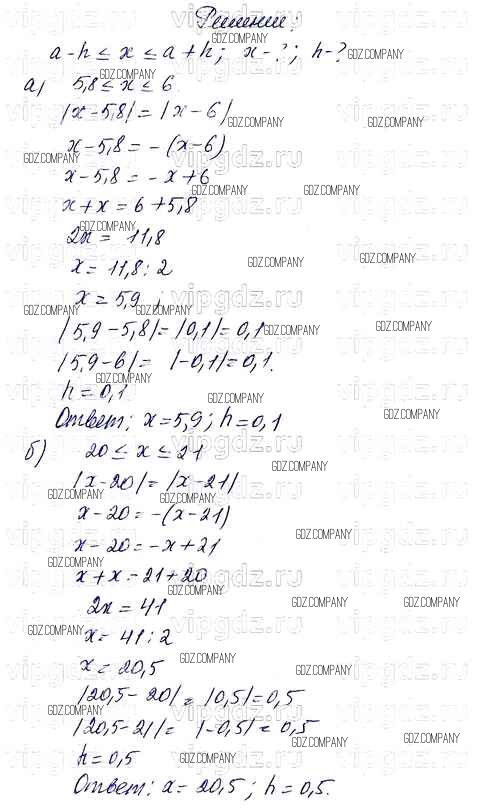 Решение:
a-h ≤ x ≤ a+h; x-?; h-?
а) 5,8 ≤ x ≤ 6
|x-5,8| = |x-6|
x-5,8 = -(x-6)
x-5,8 = -x+6
x+x = 6+5,8
2x = 11,8
x = 11,8:2
x = 5,9;
|5,9-5,8| = |0,1| = 0,1
|5,9-6| = |-0,1| = 0,1.
h = 0,1
Ответ: x=5,9; h=0,1
б) 20 ≤ x ≤ 21
|x-20| = |x-21|
x-20 = -(x-21)
x-20 = -x+21
x+x = 21+20
2x = 41
x = 41:2
x = 20,5
|20,5-20| = |0,5| = 0,5
|20,5-21| = |-0,5| = 0,5
h = 0,5
Ответ: x = 20,5; h = 0,5.
GDZ.COMPANY
vipgdz.ru